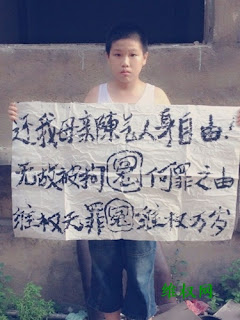 还我母亲陳乞人身自由!
无故被拘冤何罪之由
维权无罪冤维权万岁
维权网